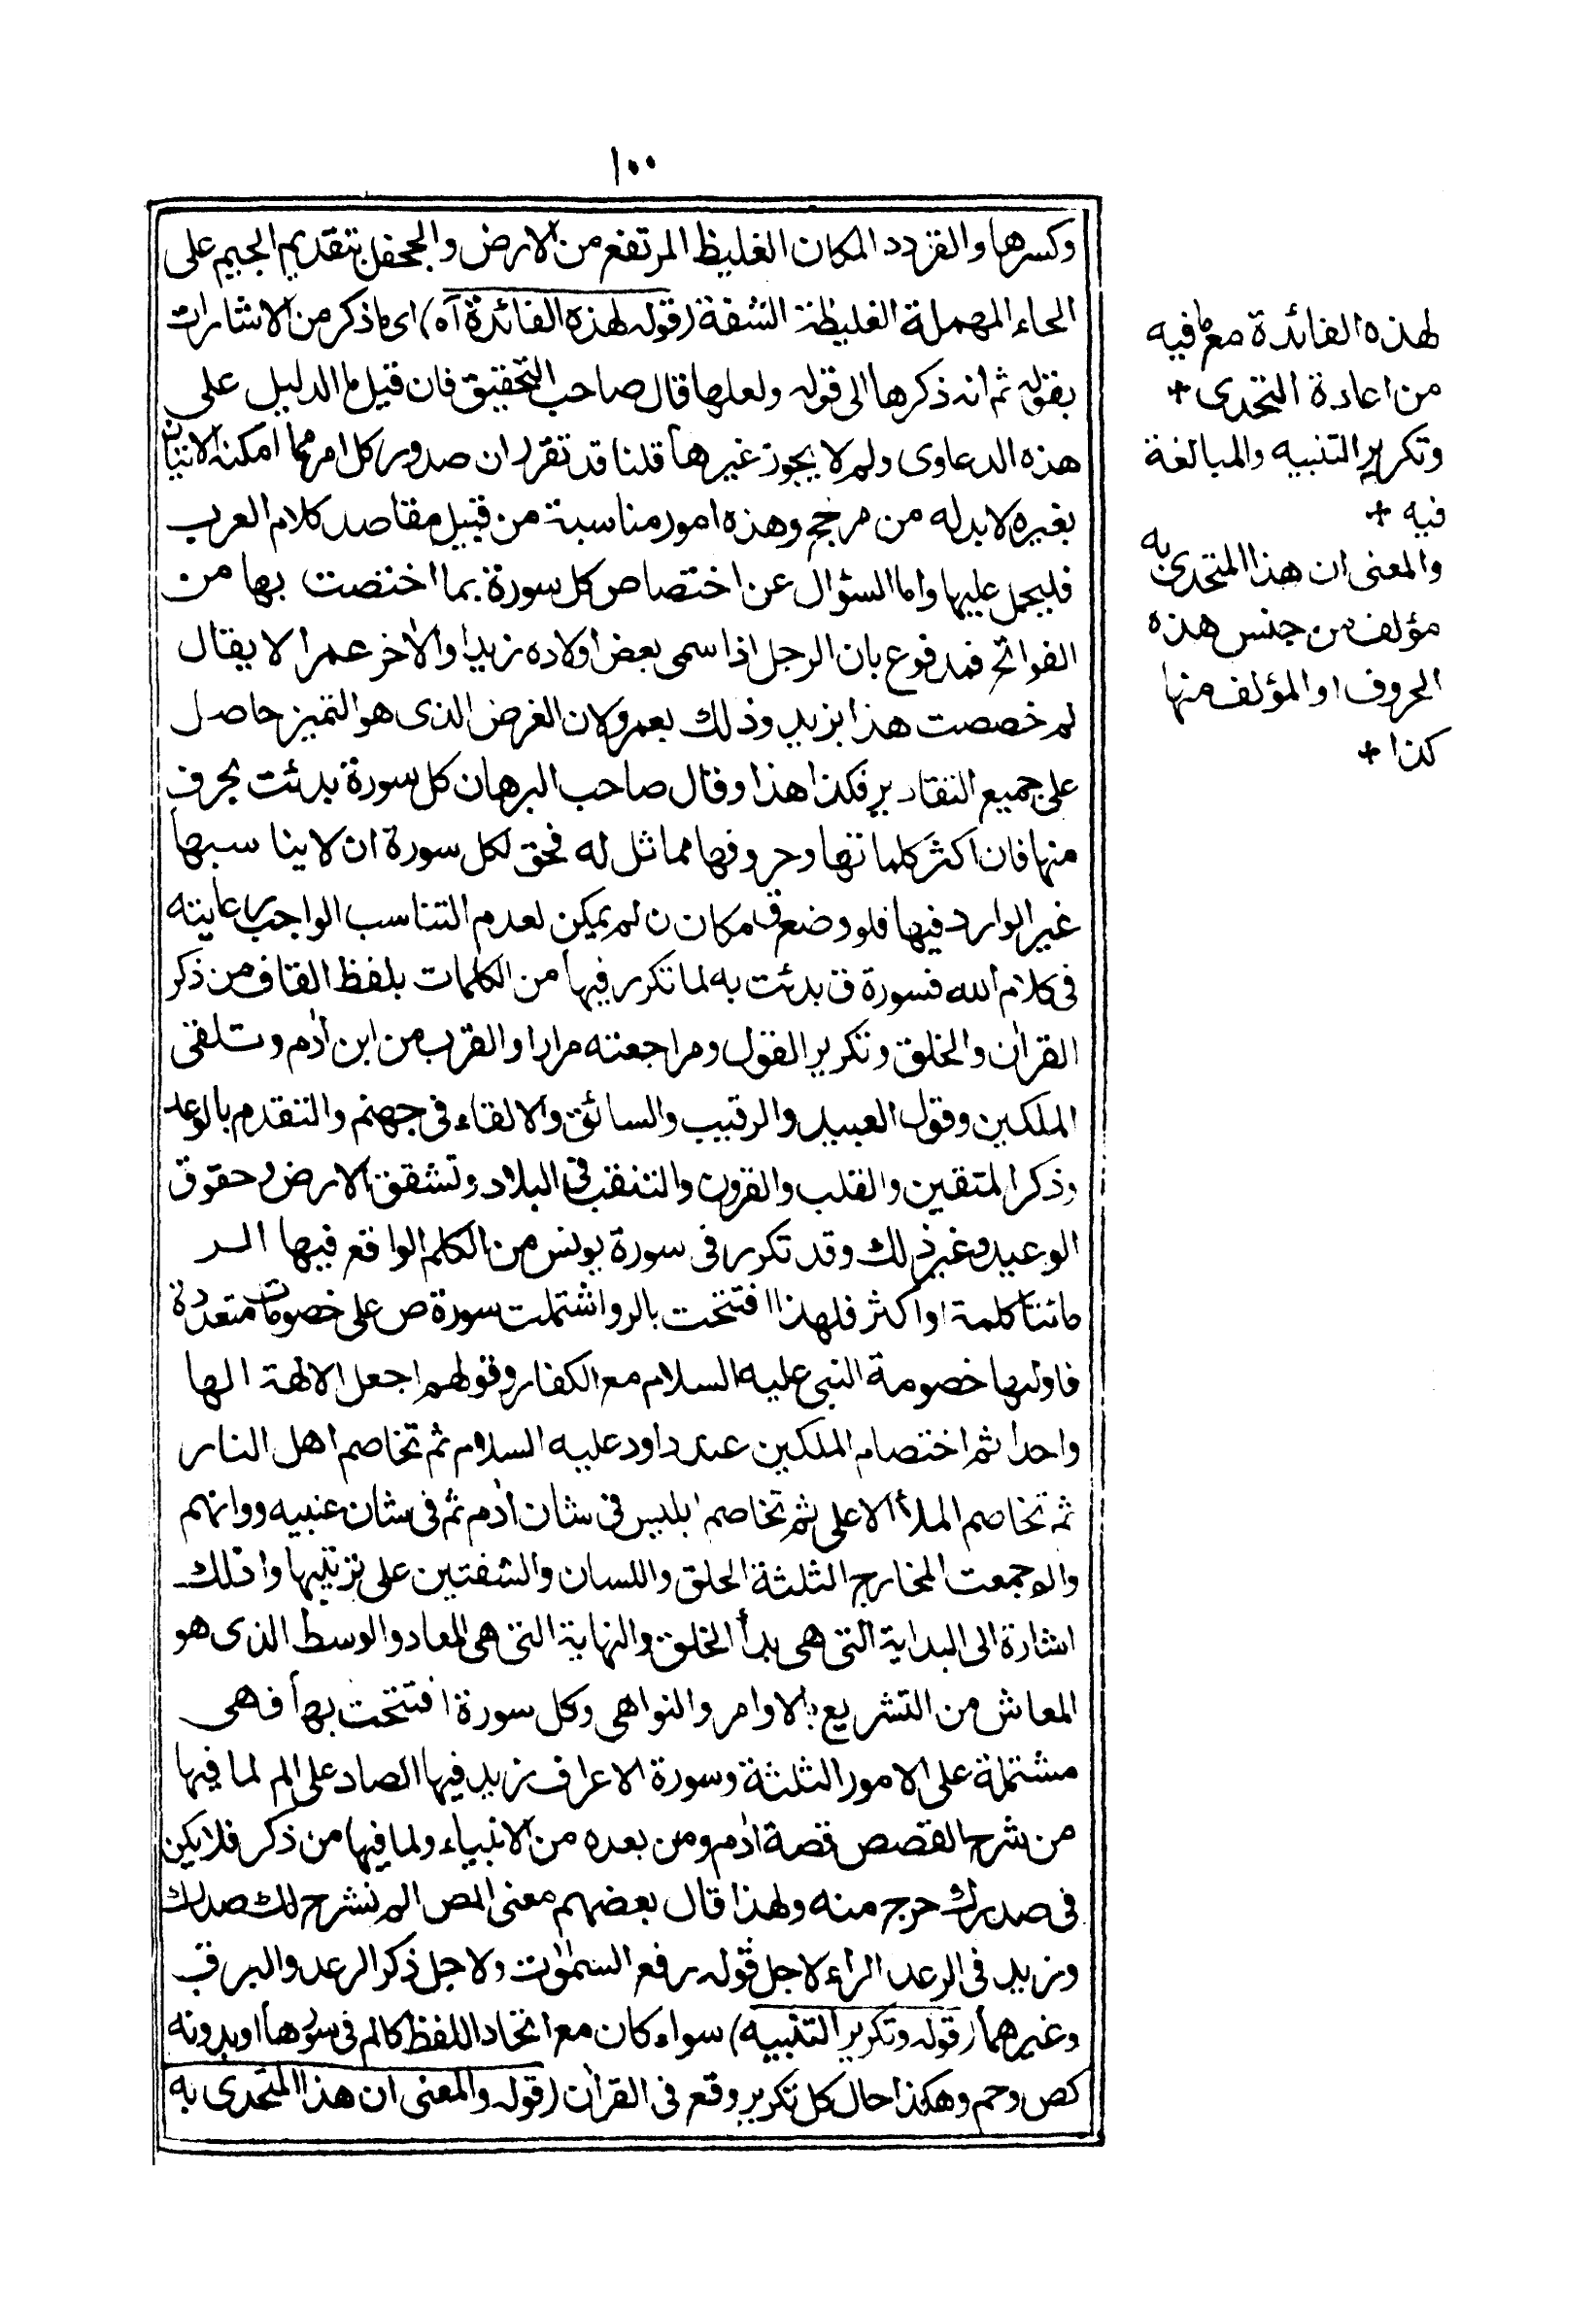 ١٠٠
وكسرها والقزدد المكان الغليظ المرتفع من الارض والجحفل بتقديم الجيم على
الحاء المهملة الغليظة الشفة (قوله لهذه الفائدة آه) اى ما ذكر من الاشارات
بقوله ثم انه ذكرها الى قوله ولعلها قال صاحب التحقيق فان قيل ما الدليل على
هذه الدعاوى ولم لا يجوز غيرها قلنا قد تقرر ان صدور كل امر مما امكنه الاتيان
بغيره لابد له من مرجح وهذه امور مناسبة من قبيل مقاصد كلام العرب
فليحمل عليها واما السؤال عن اختصاص كل سورة بما اختصت بها من
الفواتح فمدفوع بان الرجل اذا سمى بعض اولاده زيدا والاخر عمرا لا يقال
لم خصصت هذا بزيد وذلك بعمرو لان الغرض الذى هو التميز حاصل
على جميع التقادير فكذا هذا وقال صاحب البرهان كل سورة بدئت بحرف
منها فان اكثر كلماتها وحروفها مماثل له فحق لكل سورة ان لا يناسبها
غير الوارد فيها فلو وضع ق مكان ن لم يمكن لعدم التناسب الواجب رعايته
فى كلام الله فسورة ق بدئت به لما تكرر فيها من الكلمات بلفظ القاف من ذكر
القران والخلق وتكرير القول ومراجعته مرارا والقرب من ابن ادم وتلقى
الملكين وقول العبيد والرقيب والسائق والالقاء فى جهنم والتقدم بالوعد
وذكر المتقين والقلب والقرون والتنقب فى البلاد وتشقق الارض وحقوق
الوعيد وغير ذلك وقد تكرر فى سورة يونس من الكلم الواقع فيها الــر
مائتا كلمة او اكثر فلهذا افتتحت بالر واشتملت سورة ص على خصومات متعددة
فاولها خصومة النبى عليه السلام مع الكفار وقولهم اجعل الالهة الها
واحدا ثم اختصام الملكين عند داود عليه السلام ثم تخاصم اهل النار
ثم تخاصم الملأ الاعلى ثم تخاصم ابليس فى شان ادم ثم فى شان عنبيه ووانهم
والم جمعت المخارج الثلثة الحلق واللسان والشفتين على ترتيبها وذلك
اشارة الى البداية التى هى بدأ الخلق والنهاية التى هى المعاد والوسط الذى هو
المعاش من التشريع بالاوامر والنواهى وكل سورة افتتحت بها فهى
مشتملة على الامور الثلثة وسورة الاعراف زيد فيها الصاد على الم لما فيها
من شرح القصص قصة ادم ومن بعده من الانبياء ولما فيها من ذكر فلا يكن
فى صدرك حرج منه ولهذا قال بعضهم معنى المص الم نشرح لك صدرك
وزيد فى الرعد الراء لاجل قوله رفع السموات ولاجل ذكر الرعد والبرق
وغيرهما (قوله وتكرير التنبيه) سواء كان مع اتحاد اللفظ كالم فى سورها او بدونه
كص وحم وهكذا حال كل تكرير وقع فى القران (قوله والمعنى ان هذا المتحدى به
لهذه الفائدة مع ما فيه
من اعادة التحدى +
وتكرير التنبيه والمبالغة
فيه +
والمعنى ان هذا المتحدى به
مؤلف من جنس هذه
الحروف او المؤلف منها
كذا +